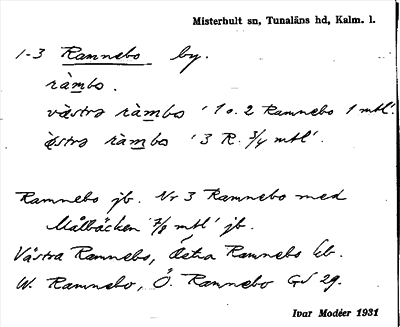 Misterhult sn, Tunaläns hd, Kalm. l.
1-3 Ramnebo by.
ràmbo.
västrə ràmbo '1 o. 2 Ramnebo 1 mtl'.
östrə ràmbo '3 R. 3/4 mtl'.
Ramnebo jb. Nr 3 Ramnebo med
Målbäcken 7/8 mtl jb.
Västra Ramnebo, Östra Ramnebo kb.
W. Ramnebo, Ö. Ramnebo GS 29.
Ivar Modéer 1931